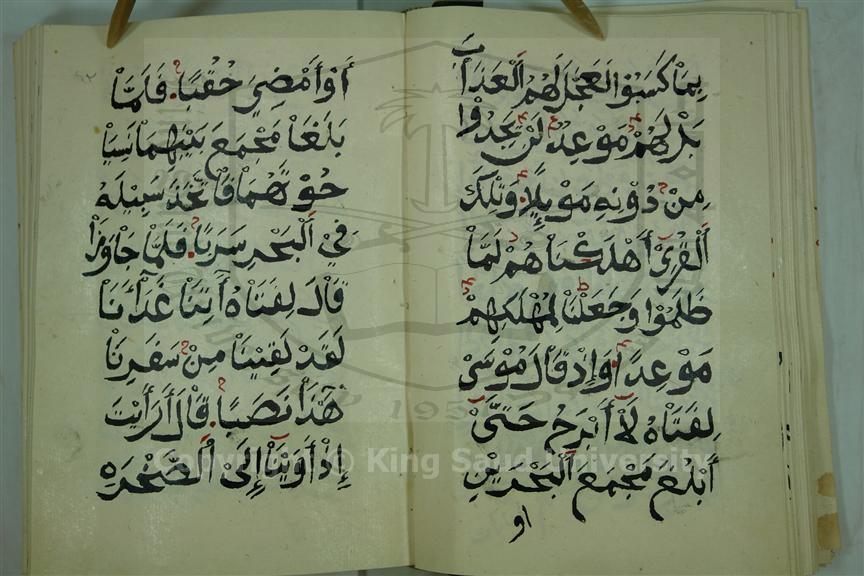 بِمَا كَسَبُوا لَعَجَّلَ لَهُمُ الْعَذَابَ
بَلْ لَهُمْ مَوْعِدٌ لَنْ يَجِدُوا
مِنْ دُوْنِهِ مَوْيِلًا وَتِلْكَ
الْقُرَىٰٓ أَهْلَكْنَاهُمْ لَمَّا
ظَلَمُوا وَجَعَلْنَا لِمُهْلَكِهِمْ
مَوْعِدًا وَإِذْ قَالَ مُوْسَىٰ
لِفَتَاهُ لَآ أَبْرَحُ حَتَّىٰٓ
أَبْلُغَ مَجْمَعَ الْبَحْرَيْنِ
او
أَوْ أَمْضِيَ حُقُبًا فَلَمَّا
بَلَغَا مَجْمَعَ بَيْنِهِمَا نَسِيَا
حُوْتَهُمَا فَاتَّخَذَ سَبِيْلَهُ
فِيْ الْبَحْرِ سَرَبًا فَلَمَّا جَاوَزَا
قَالَ لِفَتَاهُ أٰتِنَا غَدَآءَنَا
لَقَدْ لَقِيْنَا مِنْ سَفَرِنَا
هٰذَا نَصَبًا قَالَ أَرَأَيْتَ
إِذْ أَوَيْنَآ إِلَىٰ الصَّخْرَةِ
Copyright © King Saud University